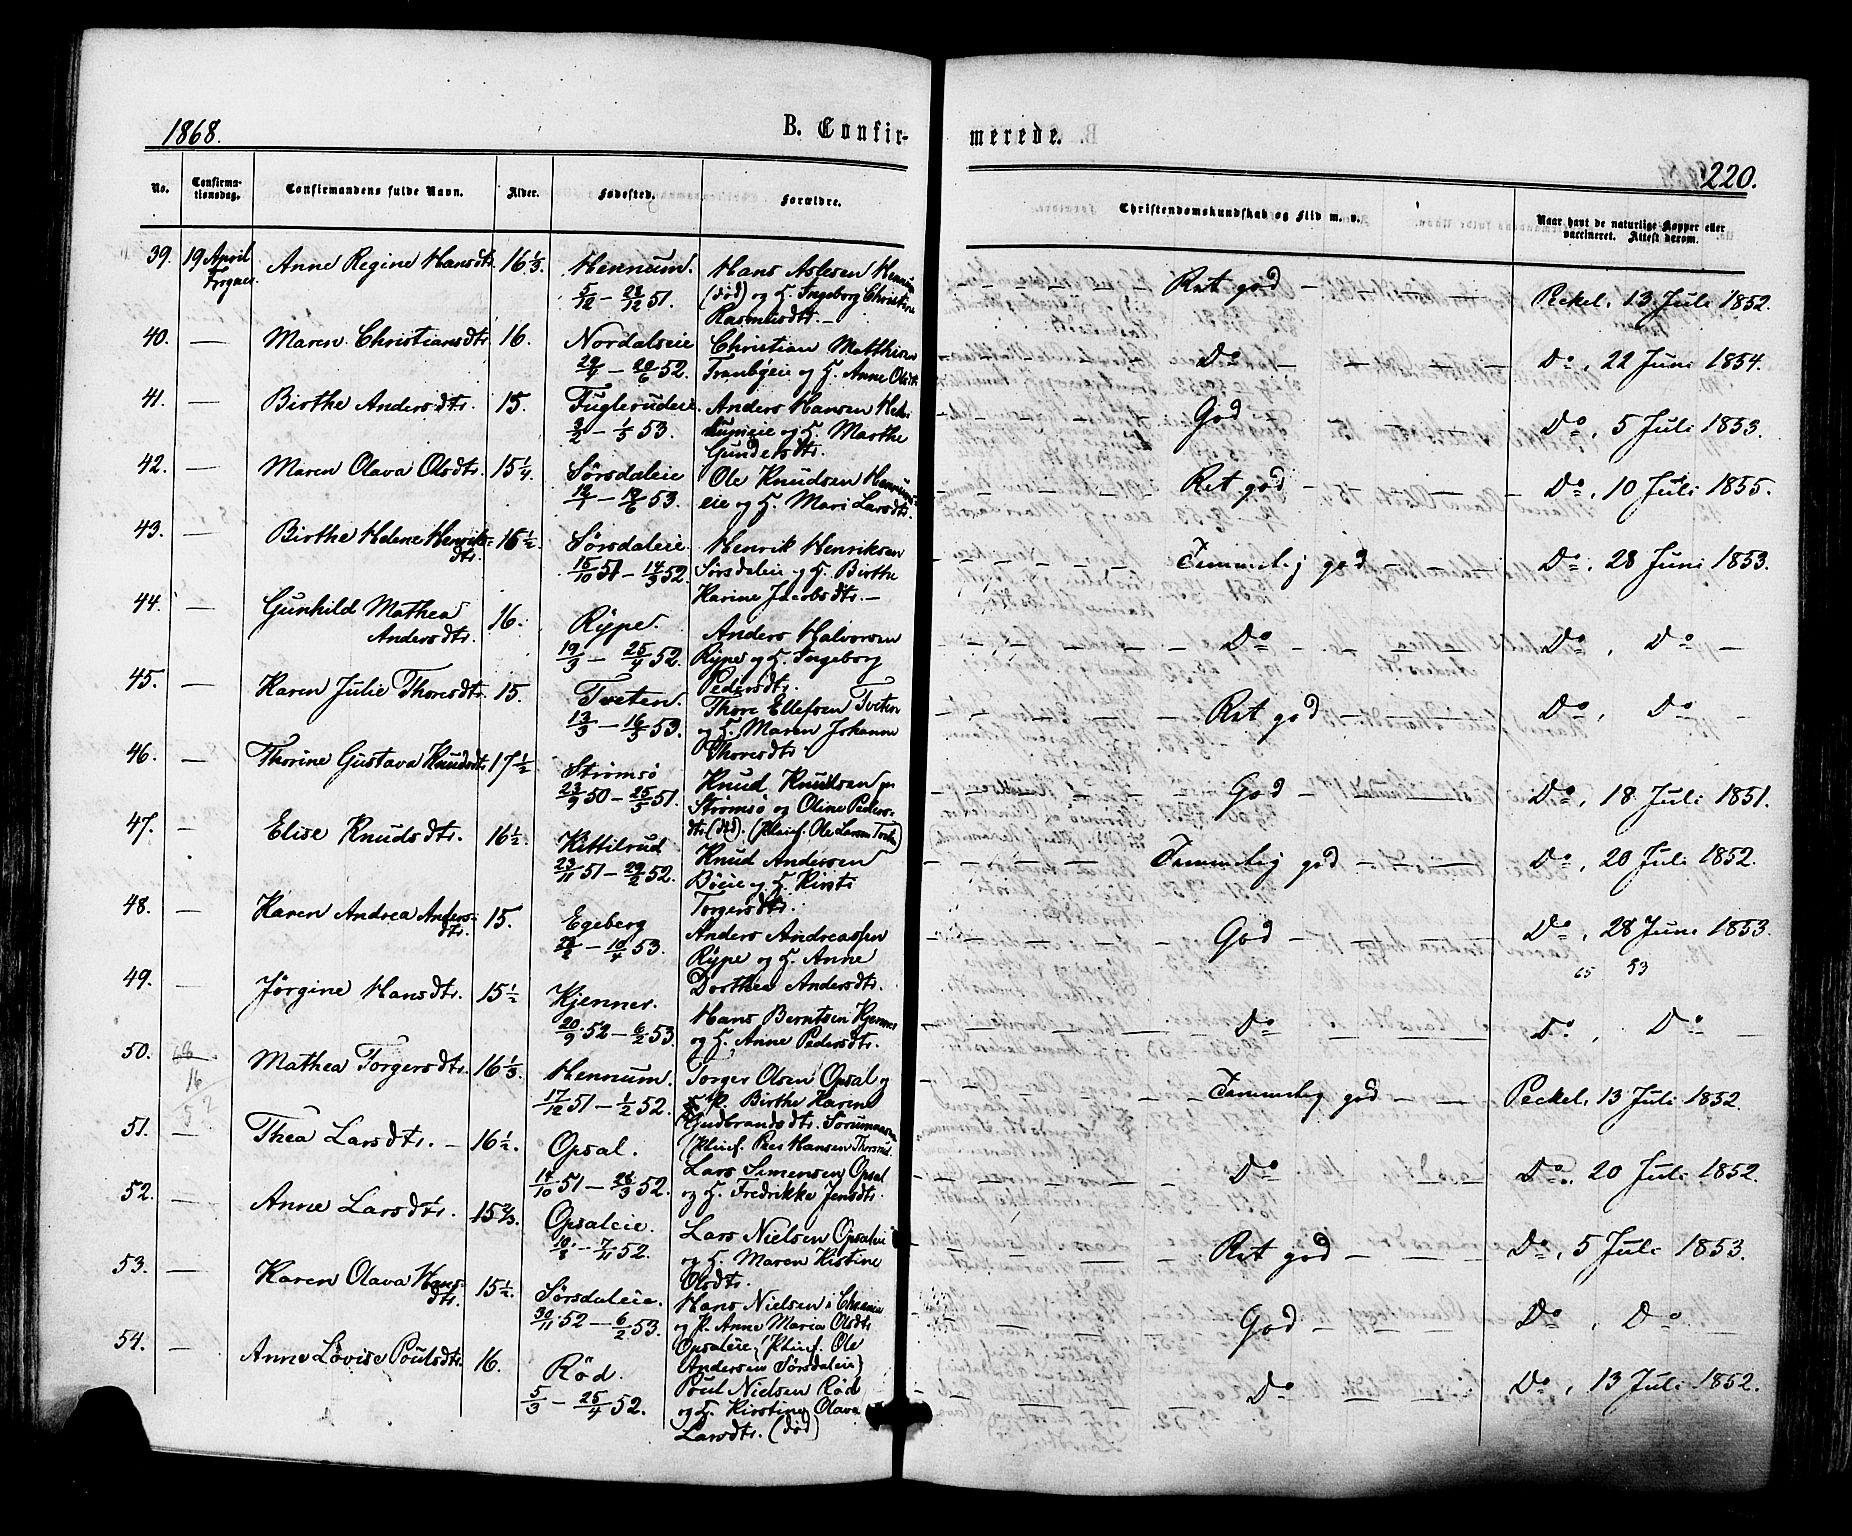 1868.
B. Confirmerede.
220.
No. Confirmationsdag. Confirmandens fulde Navn. Alder. Fødested. Forældre. Christendomskundskab og Flid m. v. Naar havt de naturlige Kopper eller vaccineret. Attest derom.
39. 19 April Anne Regine Hansdtr. 16 1/3. Hennum. Hans Aslesen Hennum Ret god Peckel, 13 Juli 1852.
5/12 – 28/12 51. (død) og H. Ingeborg Christine
Rasmusdtr. –
40. — Maren Christiansdtr. 16. Nordalseie Christian Matthisen Do Do, 22 Juni 1854.
Tranbyeie og H. Anne Olsdtr.
41. — Birthe Andersdtr. 15. Fuglerudeie. Anders Hansen God Do, 5 Juli 1853.
2/2 – 1/5 53. og H. Marthe
Gundersdtr.
42. — Maren Olava Olsdtr. 15 1/4 Sørsdaleie Ole Knudsen Hennums- Ret god Do, 10 Juli 1855.
eie og H. Mari Larsdtr.
43. — Birthe Helene Henriks- 16 1/2. Sørsdaleie. Henrik Henriksen Temmelig god Do, 28 Juni 1853.
dtr. 15/10 51 – 14/3 52. Sørsdaleie og H. Birthe
Karine Jacobsdtr. –
44. — Gunhild Mathea 16. Rype. Anders Halvorsen Do Do, Do
Andersdtr. 19/3 – 25/4 52. Rype og H. Ingeborg
Pedersdtr.
45. — Karen Julie Thoresdtr. 15. Tveten. Thore Ellefsen Tveten Ret god Do, Do
13/3 – 16/5 53. og H. Maren Johanne
Thoresdtr.
46. — Thorine Gustava Knudsdtr. 17 1/2 Strømsø Knud Knudsen God Do, 18 Juli 1851.
23/9 50 – 25/5 51. Strømsø og Oline Peders-
dtr. (død). (Pleief. Ole Larsen
47. — Elise Knudsdtr. 16 1/2. Kittilrud Knud Andersen Temmelig god Do, 20 Juli 1852.
23/11 51 – 29/2 52. Bøeie og H. Kirsti
Torgersdtr.
48. — Karen Andrea Anders- 15. Egeberg Anders Andreassen God Do, 28 Juni 1853.
dtr. Rype og H. Anne
Dorthea Andersdtr.
65 53
49. — Jørgine Hansdtr. 15 1/2 Kjenner. Hans Berntsen Kjenner Do Do, Do
20/9 52 – 6/2 53. og H. Anne Pedersdtr.
50. Mathea Torgersdtr. 16 1/3 Hennum. Torger Olsen Opsal og Temmelig god Peckel, 13 Juli 1852.
17/12 51 – 1/2 52. P. Birthe Karine
Gudbrandsdtr.
(Pleief. Peer Hansen
51. — Thea Larsdtr. – 16 1/2. Opsal. Lars Simensen Opsal Do Do, 20 Juli 1852.
14/10 51 – 28/3 52. og H. Fredrikke Jensdtr.
52. — Anne Larsdtr. 15 2/3. Opsaleie. Lars Nielsen Opsaleie Ret god Do, 5 Juli 1853.
10/8 – 7/11 52. og H. Maren Kistine
Olsdtr.
53. — Karen Olava Hans- 15 1/2. Sørsdaleie. Hans Nielsen i God Do, Do
dtr. 30/11 52 – 6/2 53. og P. Anne Maria Olsdtr
Opsaleie (Pleief. Ole
Andersen Sørsdaleie)
54. — Anne Lovise Poulsdtr. 16. Rød. Poul Nielsen Rød Do Do, 13 Juli 1852.
5/3 – 25/4 52. og H. Kirstine Olava
Larsdtr. (død)